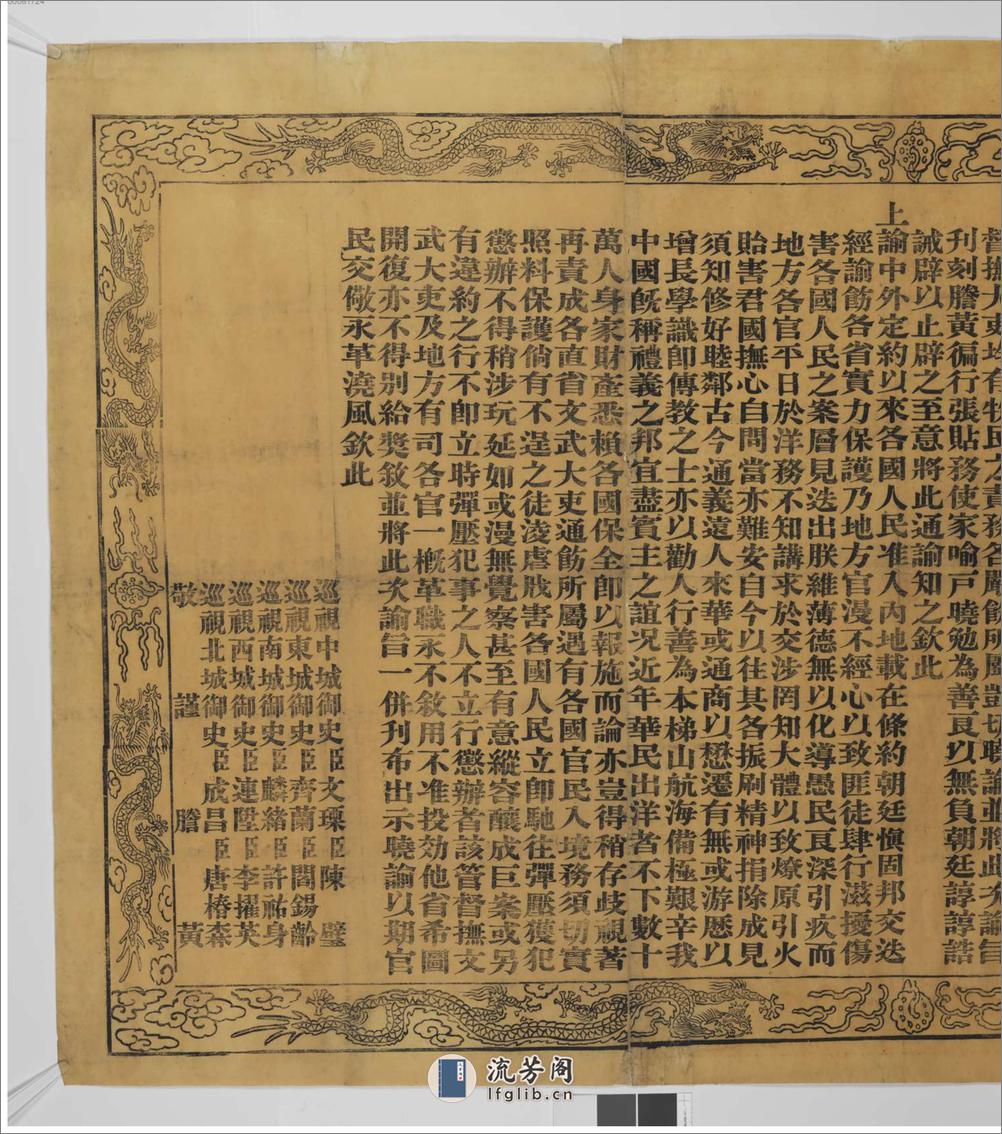 督撫大吏均有牧民之責務各嚴飭所屬剀切聯諭並將此次諭旨
刊刻謄黃徧行張貼務使家喻戸曉勉為善良以無負朝廷諄諄誥
誡辟以止辟之至意將此通諭知之欽此
上諭中外定約以來各國人民准入內地載在條約朝廷愼固邦交迭
經諭飭各省實力保護乃地方官漫不經心以致匪徒肆行滋擾傷
害各國人民之案層見迭出朕維薄德無以化導愚民良深引疚而
地方各官平日於洋務不知講求於交涉罔知大體以致燎原引火
貽害君國撫心自問當亦難安自今以往其各振刷精神捐除成見
須知修好睦鄰古今通義遠人來華或通商以懋遷有無或游歷以
增長學識卽傳教之士亦以勸人行善為本梯山航海備極艱辛我
中國旣稱禮義之邦宜盡賓主之誼況近年華民出洋者不下數十
萬人身家財產悉賴各國保全卽以報施而論亦豈得稍存歧視著
再責成各直省文武大吏通飭所屬遇有各國官民入境務須切實
照料保護倘有不逞之徒淩虐戕害各國人民立卽馳往彈壓獲犯
懲辦不得稍涉玩延如或漫無覺察甚至有意縱容釀成巨案或另
有違約之行不卽立時彈壓犯事之人不立行懲辦者該管督撫文
武大吏及地方有司各官一槪革職永不敘用不准投効他省希圖
開復亦不得別給獎敘並將此次諭旨一併刊布出示曉諭以期官
民交儆永革澆風欽此
巡視中城御史臣文瑮臣陳璧
巡視東城御史臣齊蘭臣閻錫齡
巡視南城御史臣麟緒臣許祐身
巡視西城御史臣連陞臣李擢英
巡視北城御史臣成昌臣唐椿森
敬謹謄黃
流芳阁
lfglib.cn